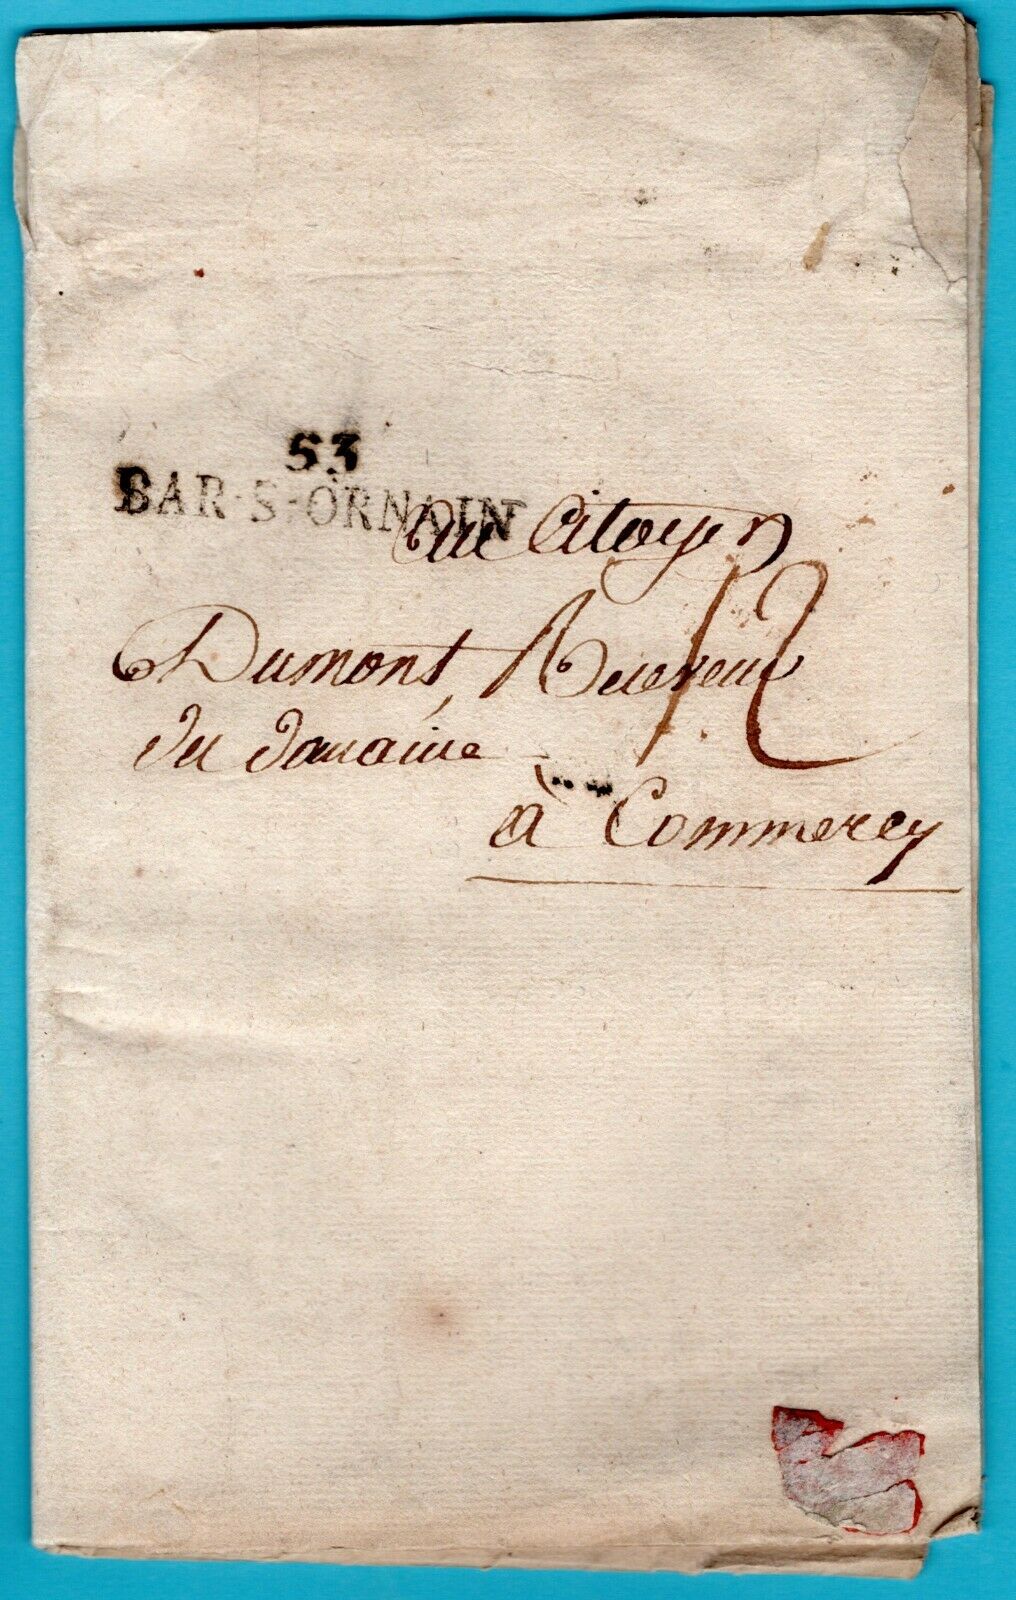 53
BAR-S-ORNAIN
Au Citoyen
Dumont, Receveur
du domaine
12
à Commercy